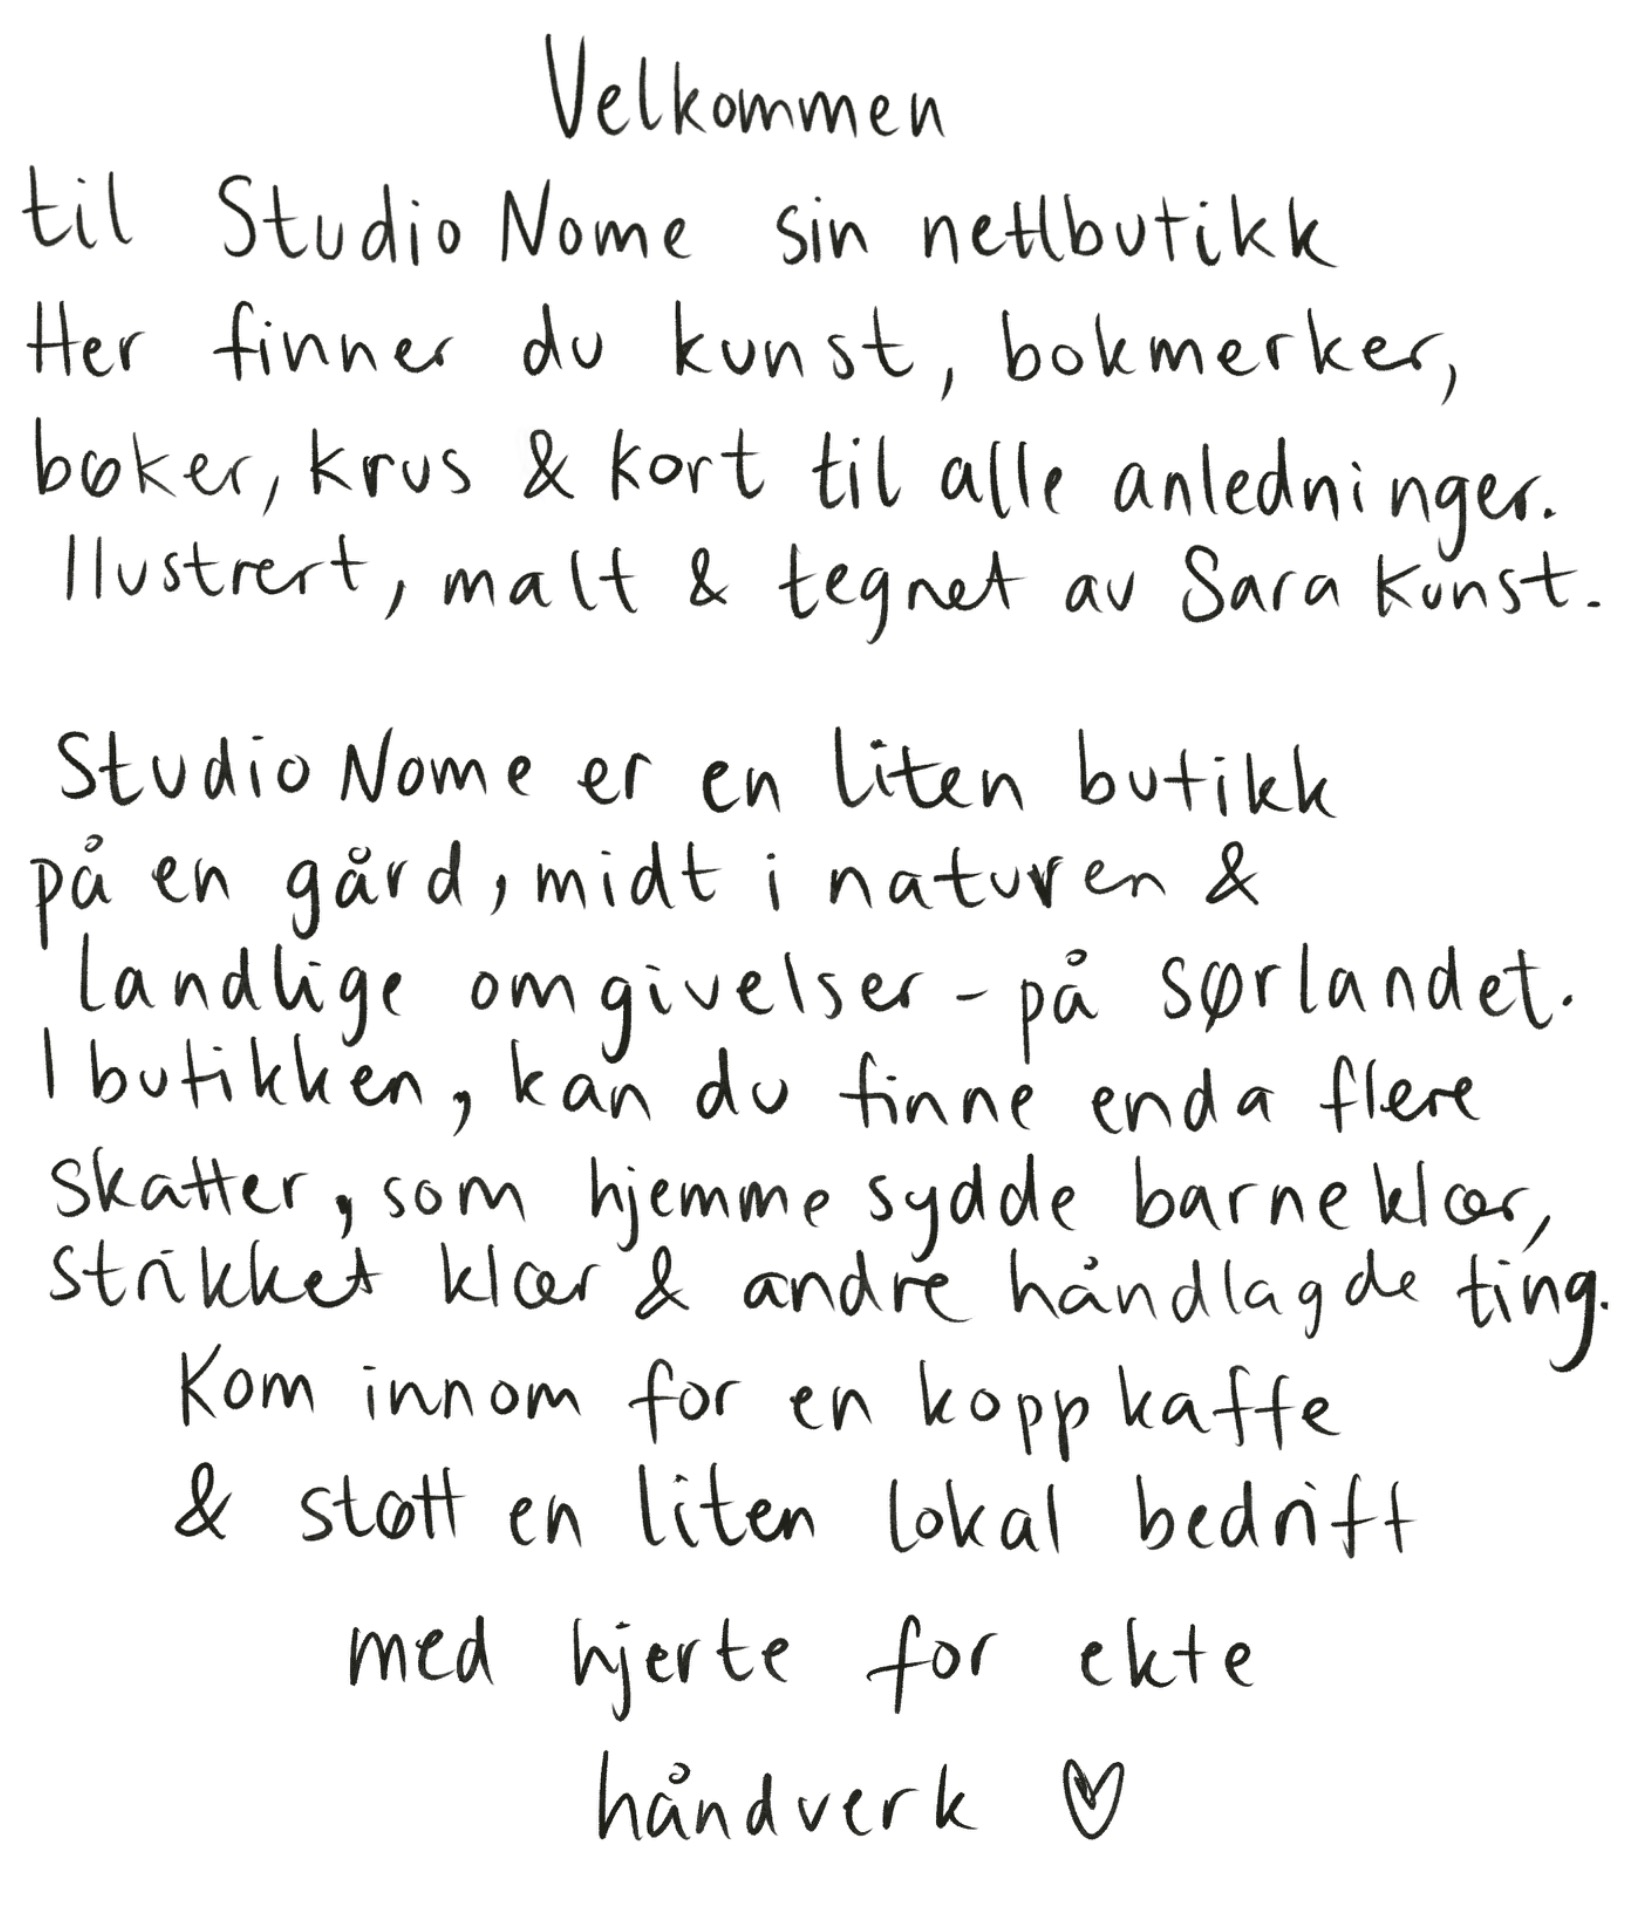 Velkommen
til Studio Nome sin nettbutikk
Her finner du kunst, bokmerker,
bøker, krus & kort til alle anledninger.
Ilustrert, malt & tegnet av Sara Kunst.
Studio Nome er en liten butikk
på en gård, midt i naturen &
landlige omgivelser - på sørlandet.
I butikken, kan du finne enda flere
skatter, som hjemme sydde barneklær,
strikket klær & andre håndlagde ting.
Kom innom for en kopp kaffe
& støtt en liten lokal bedrift
med hjerte for ekte
håndverk ♡